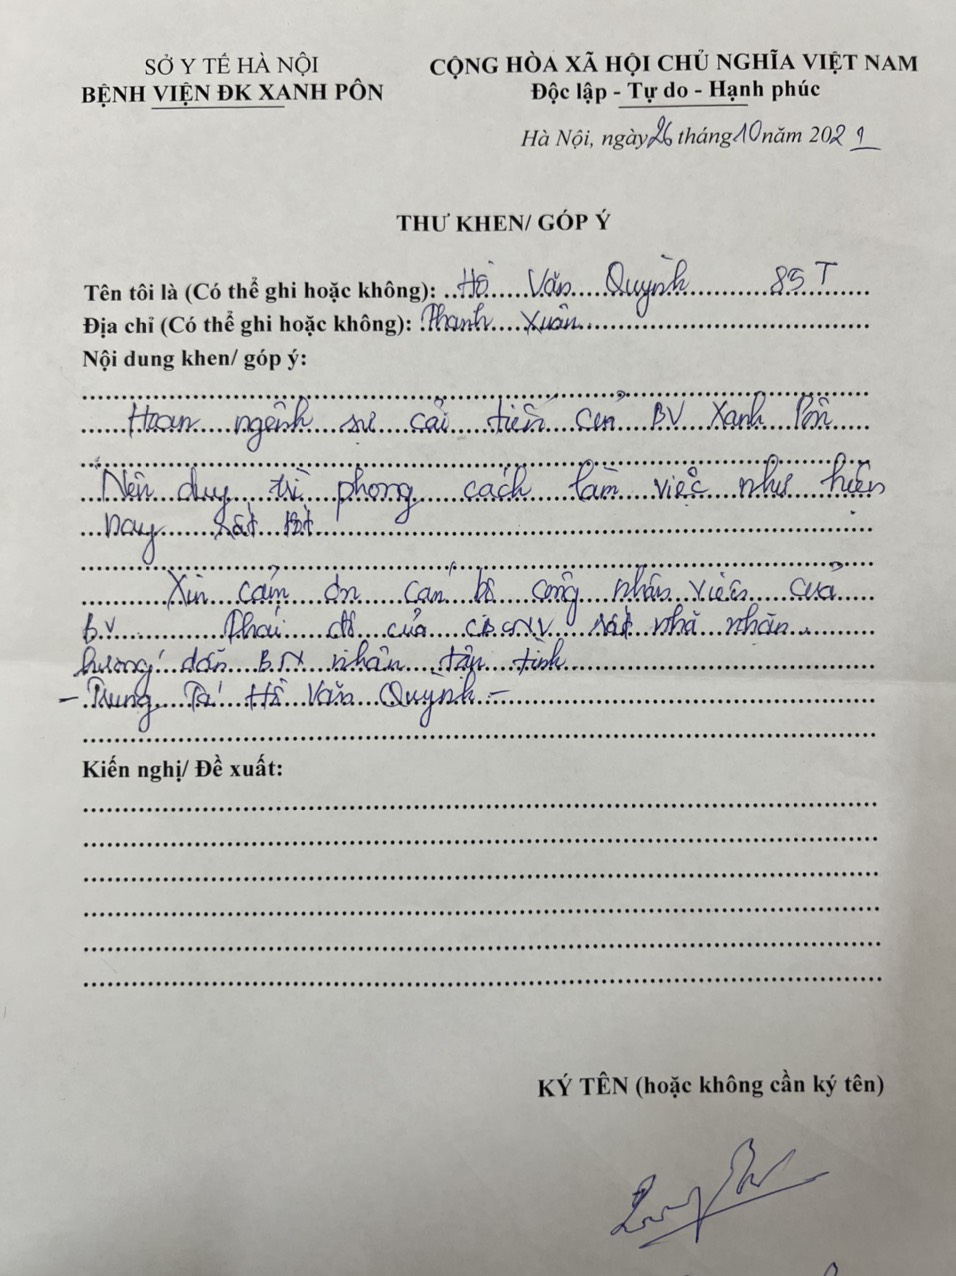 SỞ Y TẾ HÀ NỘI
BỆNH VIỆN ĐK XANH PÔN
CỘNG HÒA XÃ HỘI CHỦ NGHĨA VIỆT NAM
Độc lập - Tự do - Hạnh phúc
Hà Nội, ngày 26 tháng 10 năm 2021
THƯ KHEN/ GÓP Ý
Tên tôi là (Có thể ghi hoặc không): Hồ Văn Quỳnh 85 T
Địa chỉ (Có thể ghi hoặc không): Thanh Xuân
Nội dung khen/ góp ý:
Hoan ngênh sự cải tiến của BV Xanh Pôn
Nên duy trì phong cách làm việc như hiện
nay rất tốt
Xin cảm ơn cán bộ công nhân viên của
BV Thái độ của CBCNV rất nhã nhặn
hướng dẫn B.N nhân tận tình
- Trung Tá Hồ Văn Quỳnh -
Kiến nghị/ Đề xuất:
KÝ TÊN (hoặc không cần ký tên)